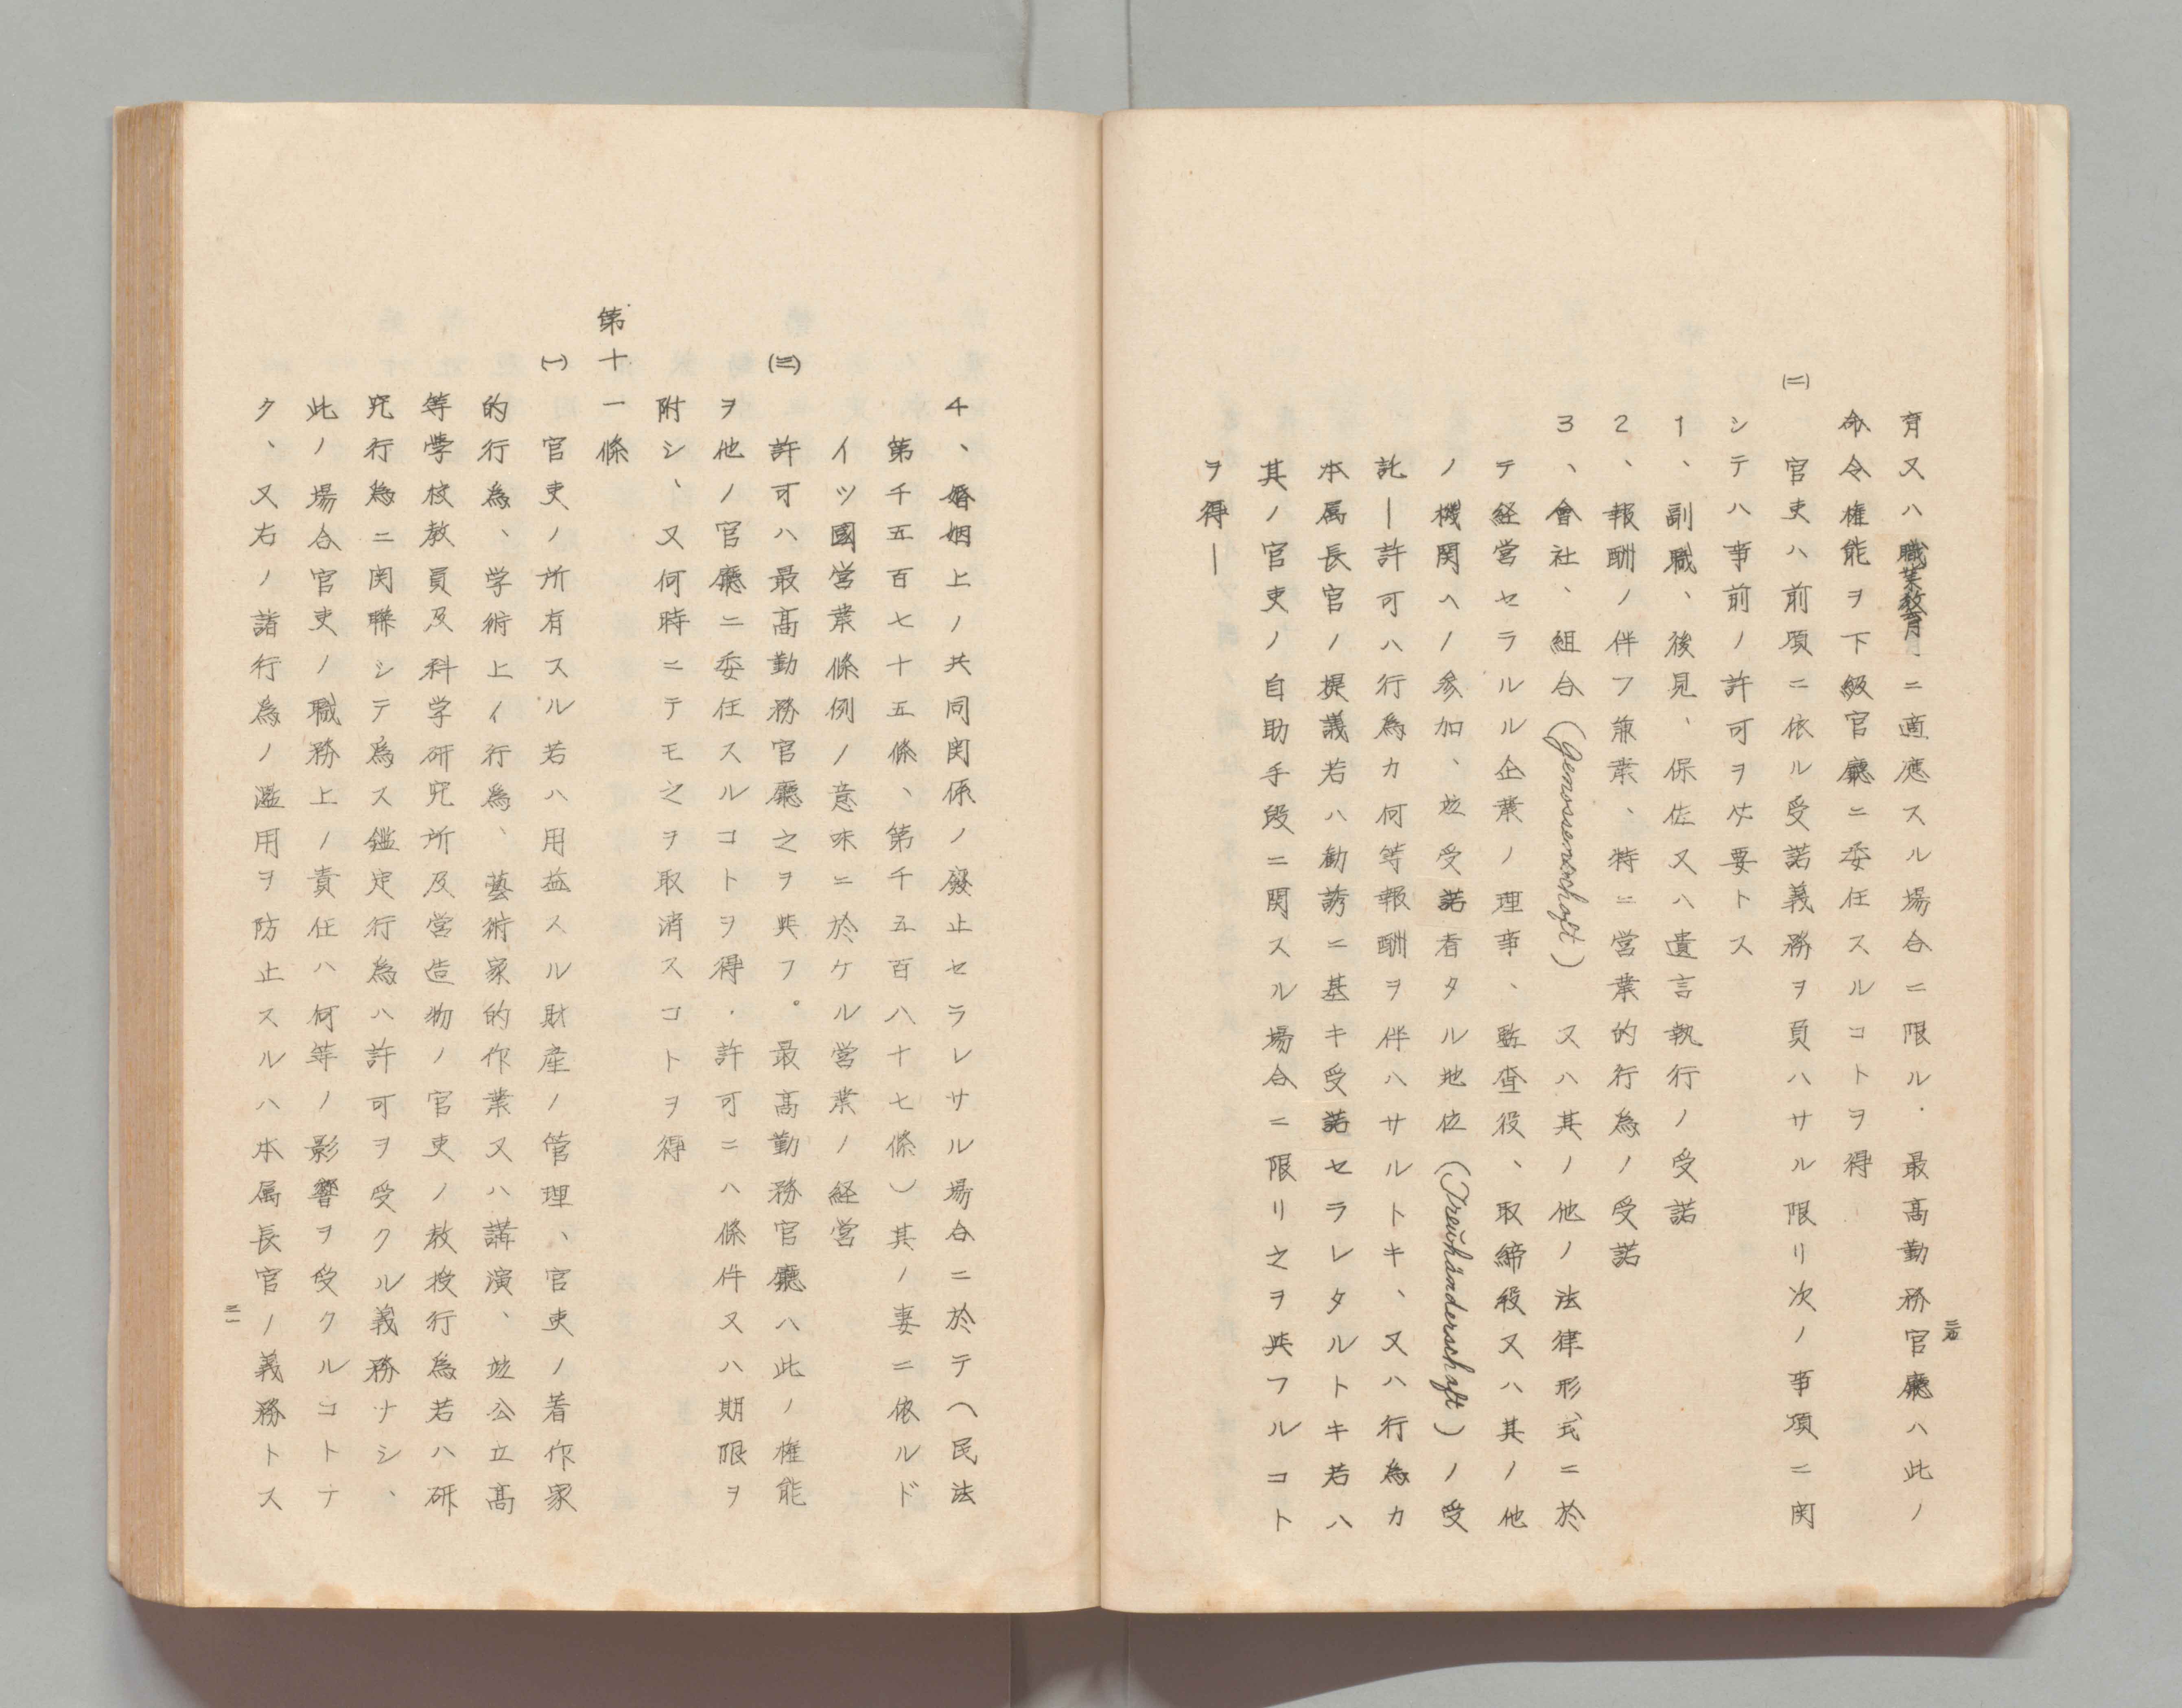 育又ハ職業教育ニ適應スル場合ニ限ル．最高勤務官廳ハ此ノ
命令権能ヲ下級官廳ニ委任スルコトヲ得
(二)　官吏ハ前項ニ依ル受諾義務ヲ負ハサル限リ次ノ事項ニ関
シテハ事前ノ許可ヲ必要トス
1、副職、後見、保佐又ハ遺言執行ノ受諾
2、報酬ノ伴フ兼業、特ニ営業的行為ノ受諾
3、會社、組合(Genossenschaft)又ハ其ノ他ノ法律形式ニ於
テ経営セラルル企業ノ理事、監査役、取締役又ハ其ノ他
ノ機関ヘノ参加、竝受諾者タル地位(Treuhänderschaft)ノ受
託―許可ハ行為カ何等報酬ヲ伴ハサルトキ、又ハ行為カ
本属長官ノ提議若ハ勧誘ニ基キ受諾セラレタルトキ若ハ
其ノ官吏ノ自助手段ニ関スル場合ニ限リ之ヲ與フルコト
ヲ得―
4、婚姻上ノ共同関係ノ廢止セラレサル場合ニ於テ(民法
第千五百七十五條、第千五百八十七條)其ノ妻ニ依ルド
イツ國営業條例ノ意味ニ於ケル営業ノ経営
(三)　許可ハ最高勤務官廳之ヲ與フ。最高勤務官廳ハ此ノ権能
ヲ他ノ官廳ニ委任スルコトヲ得．許可ニハ條件又ハ期限ヲ
附シ、又何時ニテモ之ヲ取消スコトヲ得
第十一條
(一)　官吏ノ所有スル若ハ用益スル財産ノ管理、官吏ノ著作家
的行為、学術上ノ行為、藝術家的作業又ハ講演、竝公立高
等學校教員及科学研究所及営造物ノ官吏ノ教授行為若ハ研
究行為ニ関聯シテ為ス鑑定行為ハ許可ヲ受クル義務ナシ、
此ノ場合官吏ノ職務上ノ責任ハ何等ノ影響ヲ受クルコトナ
ク、又右ノ諸行為ノ濫用ヲ防止スルハ本属長官ノ義務トス
三一